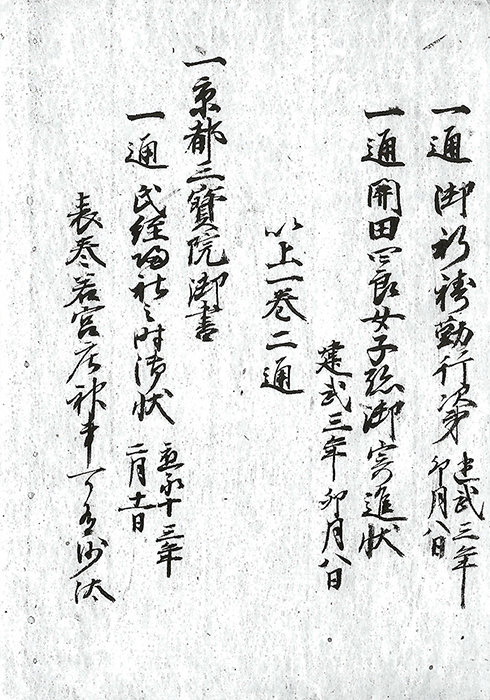 一通 御祈祷勤行次第 建武三年卯月八日
一通 開田四郎女子惣御寄進状
建武三年卯月八日
以上一巻二通
一京都三寳院御書
一通 氏経 社之時御状 應永十三年二月十一日
表 若宮 神 可 沙汰